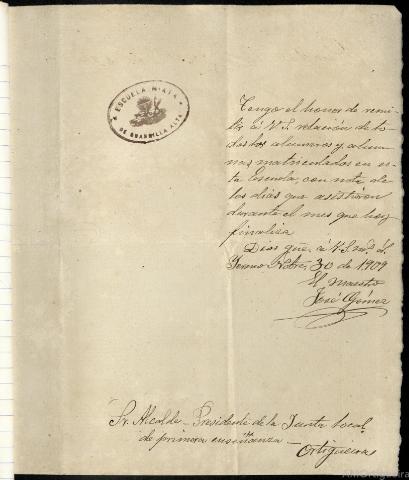 ESCUELA MIXTA
DE GRAÑILLA ALTA
Tengo el honor de remi-
tir á V. S. relación de to-
dos los alumnos y alum-
nas matriculados en es-
ta Escuela, con nota de
los días que asistieron
durante el mes que hoy
finaliza.
Dios gue. á V. S. ms. as.
Nobre. 30 de 1909
El maestro
José Gómez
Sr. Alcalde-Presidente de la Junta local
de primera enseñanza -
Ortigueira